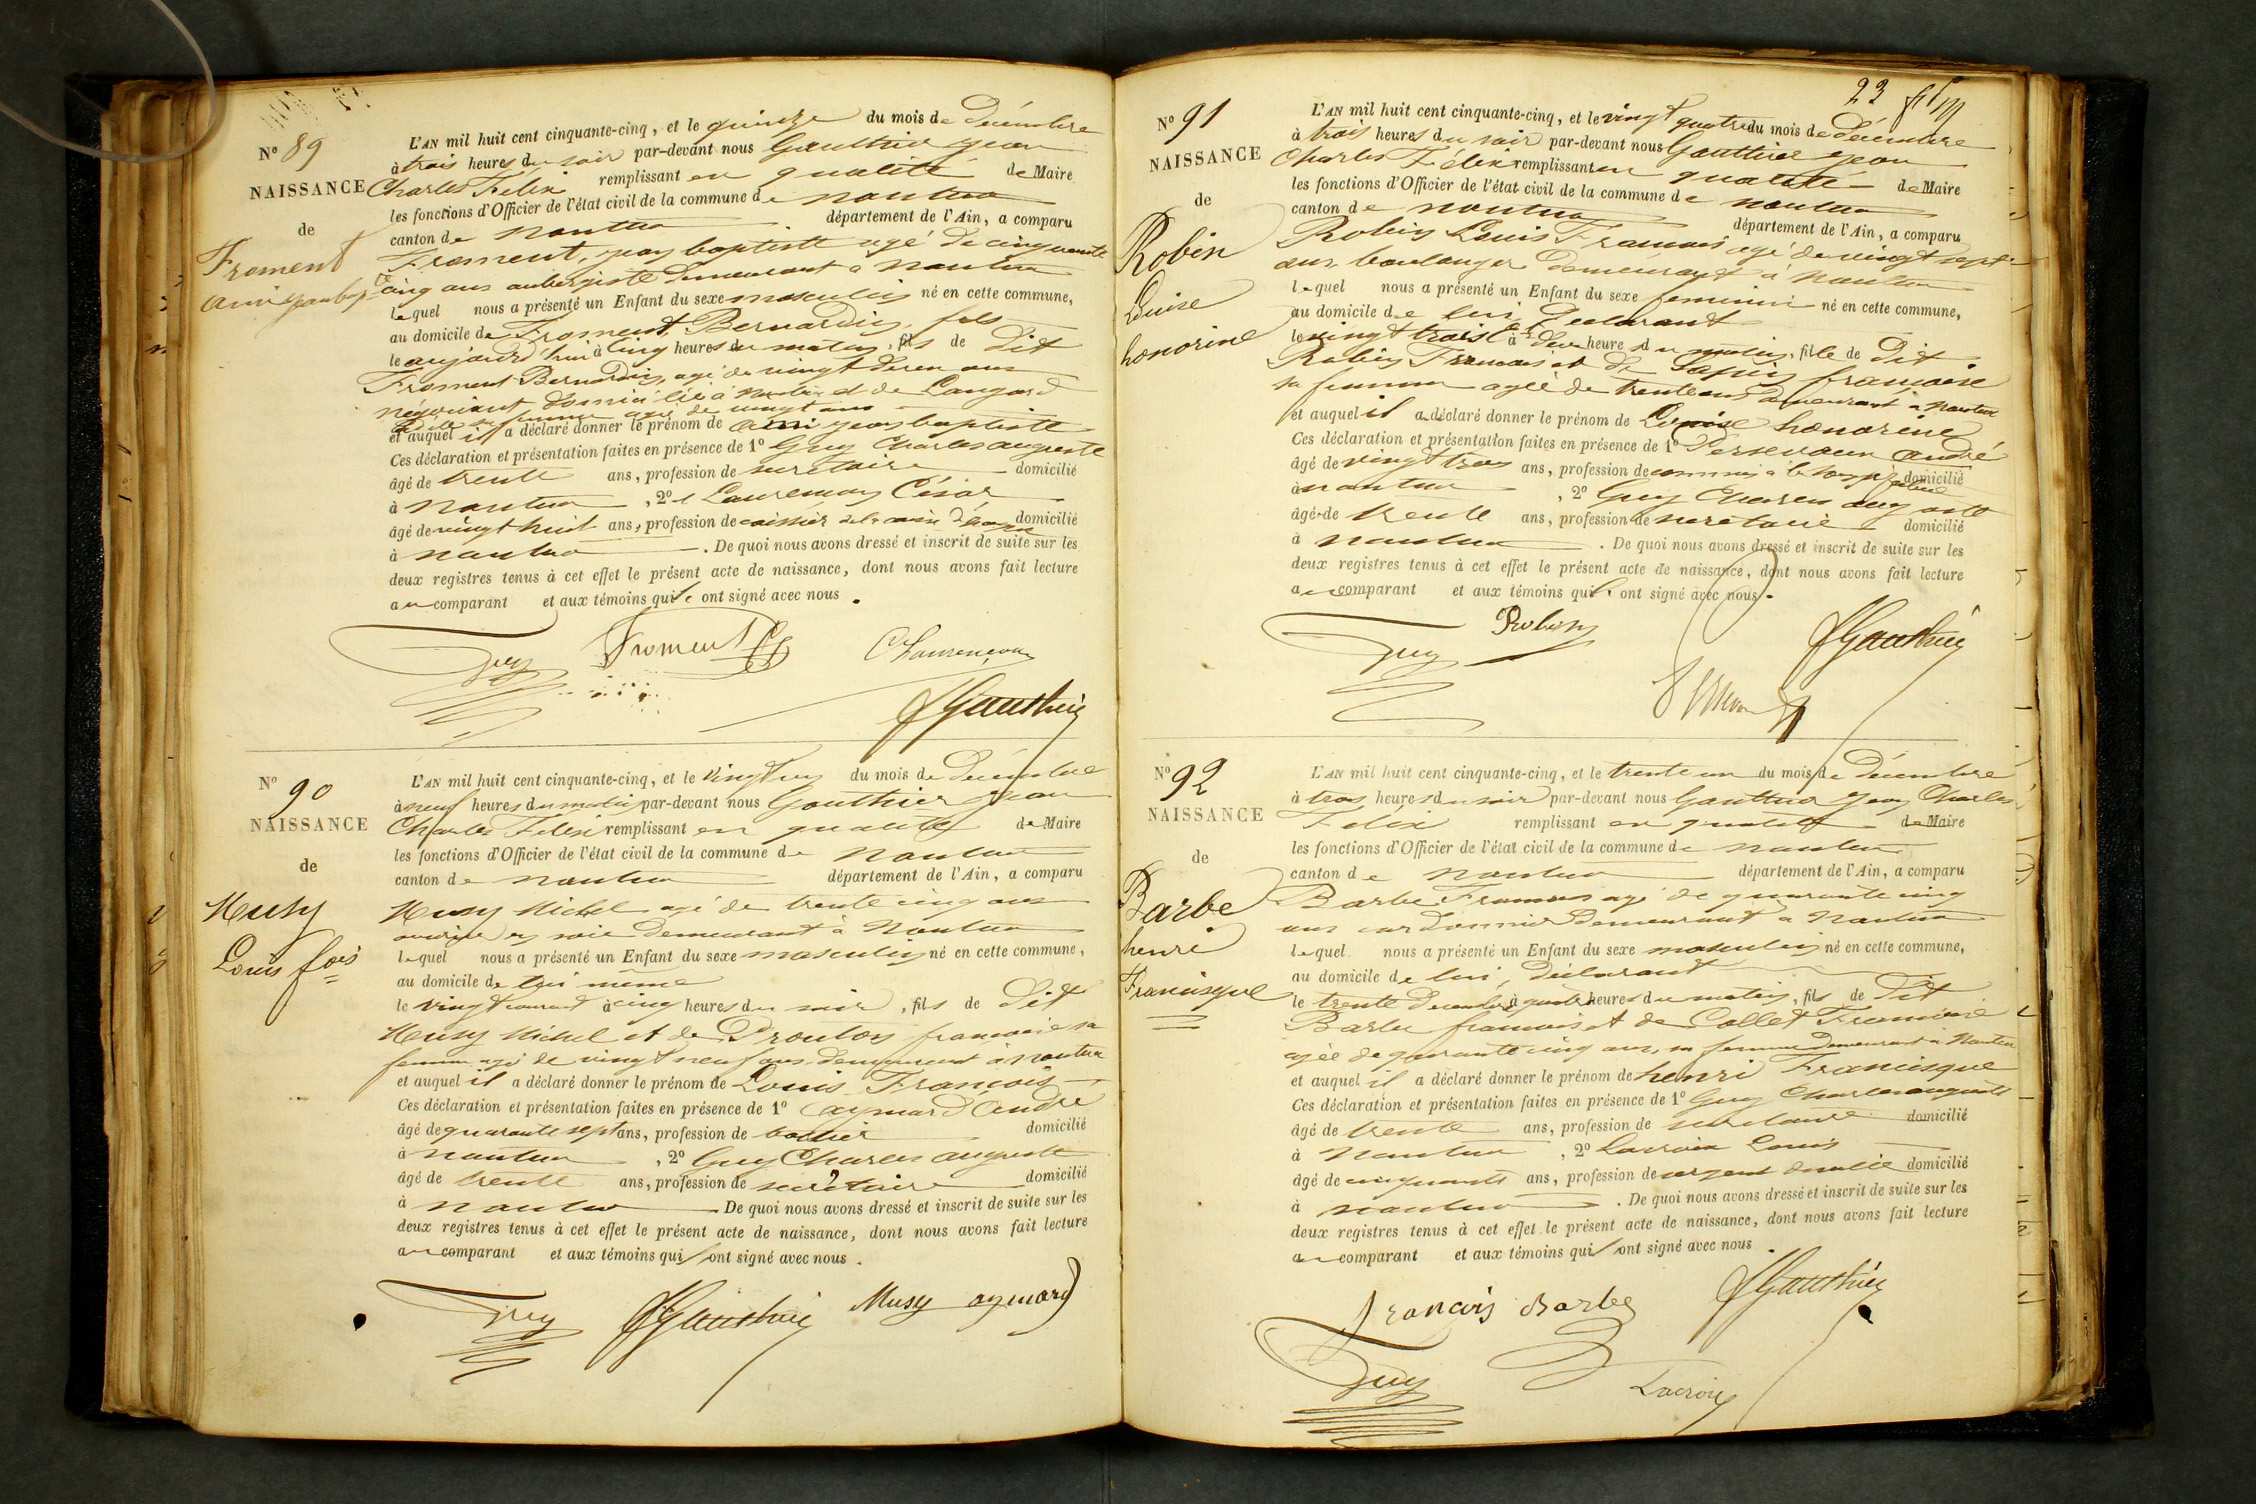 N° 89
NAISSANCE
de
Froment
L'AN mil huit cent cinquante-cinq, et le quinze du mois de Décembre
à trois heures du soir par-devant nous Gauthier jean
Charles Félix remplissant en qualité de Maire
les fonctions d'Officier de l'état civil de la commune de nantua
canton de nantua département de l'Ain, a comparu
Froment, jean baptiste agé de cinquante
cinq ans aubergiste demeurant à nantua
lequel nous a présenté un Enfant du sexe masculin né en cette commune,
au domicile de Froment Bernardin, fils
le aujourd'hui à cinq heures du matin, fils de Dit
Froment Bernardin, agé de vingt deux ans
négociant domicilié à nantua et de
sa femme agée de vingt ans
et auquel il a déclaré donner le prénom de jean baptiste
Ces déclaration et présentation faites en présence de 1° Guy Charles auguste
âgé de trente ans, profession de secretaire domicilié
à nantua, 2° César
âgé de vingt huit ans, profession de caissier de la domicilié
à nantua. De quoi nous avons dressé et inscrit de suite sur les
deux registres tenus à cet effet le présent acte de naissance, dont nous avons fait lecture
au comparant et aux témoins qui ont signé avec nous.
Guy Froment
JGauthier
N° 90
NAISSANCE
de
Musy
Louis fois
L'AN mil huit cent cinquante-cinq, et le vingt un du mois de Décembre
à neuf heures du matin par-devant nous Gauthier jean
Charles Félix remplissant en qualité de Maire
les fonctions d'Officier de l'état civil de la commune de nantua
canton de nantua département de l'Ain, a comparu
Musy Michel agé de trente cinq ans
ouvrier en soie demeurant à Nantua
lequel nous a présenté un Enfant du sexe masculin né en cette commune,
au domicile de lui même
le vingt courant à cinq heures du soir, fils de Dit
Musy Michel et de françoise sa
femme agé de vingt neuf ans demeurant à nantua
et auquel il a déclaré donner le prénom de Louis François
Ces déclaration et présentation faites en présence de 1° aymard André
âgé de quarante sept ans, profession de domicilié
à nantua, 2° Guy Charles auguste
âgé de trente ans, profession de secrétaire domicilié
à nantua. De quoi nous avons dressé et inscrit de suite sur les
deux registres tenus à cet effet le présent acte de naissance, dont nous avons fait lecture
au comparant et aux témoins qui ont signé avec nous.
Guy JGauthier Musy aymard
23
N° 91
NAISSANCE
de
Robin
Louise
honorine
L'AN mil huit cent cinquante-cinq, et le vingt quatre du mois de décembre
à trois heures du soir par-devant nous Gauthier jean
Charles Félix remplissant en qualité de Maire
les fonctions d'Officier de l'état civil de la commune de nantua
canton de nantua département de l'Ain, a comparu
Robin Louis François agé de vingt sept
ans, boulanger demeurant à nantua
lequel nous a présenté un Enfant du sexe feminin né en cette commune,
au domicile de lui, Declarant
le vingt trois à deux heures du matin, fille de Dit
Robin François et de françoise
sa femme agée de trente ans demeurant à nantua
et auquel il a déclaré donner le prénom de Louise honorine
Ces déclaration et présentation faites en présence de 1° André
âgé de vingt trois ans, profession de commis à la domicilié
à nantua, 2° Guy Charles auguste
âgé de trente ans, profession de secretaire domicilié
à nantua. De quoi nous avons dressé et inscrit de suite sur les
deux registres tenus à cet effet le présent acte de naissance, dont nous avons fait lecture
au comparant et aux témoins qui ont signé avec nous.
Guy Robin JGauthier
N° 92
NAISSANCE
de
Barbe
henri
Francisque
L'AN mil huit cent cinquante-cinq, et le trente un du mois de Décembre
à trois heures du soir par-devant nous Gauthier jean Charles
Félix remplissant en qualité de Maire
les fonctions d'Officier de l'état civil de la commune de nantua
canton de nantua département de l'Ain, a comparu
Barbe François agé de quarante cinq
ans cordonnier Demeurant à Nantua
lequel nous a présenté un Enfant du sexe masculin né en cette commune,
au domicile de lui, déclarant
le trente Decembre à quatre heures du matin, fils de Dit
Barbe françois et de Collet Françoise
agée de quarante cinq ans, sa femme Demeurant à Nantua
et auquel il a déclaré donner le prénom de henri Francisque
Ces déclaration et présentation faites en présence de 1° Guy Charles auguste
âgé de trente ans, profession de secretaire domicilié
à Nantua, 2° Lacroix Louis
âgé de cinquante ans, profession de sergent de domicilié
à nantua. De quoi nous avons dressé et inscrit de suite sur les
deux registres tenus à cet effet le présent acte de naissance, dont nous avons fait lecture
au comparant et aux témoins qui ont signé avec nous.
françois Barbe JGauthier
Guy Lacroix